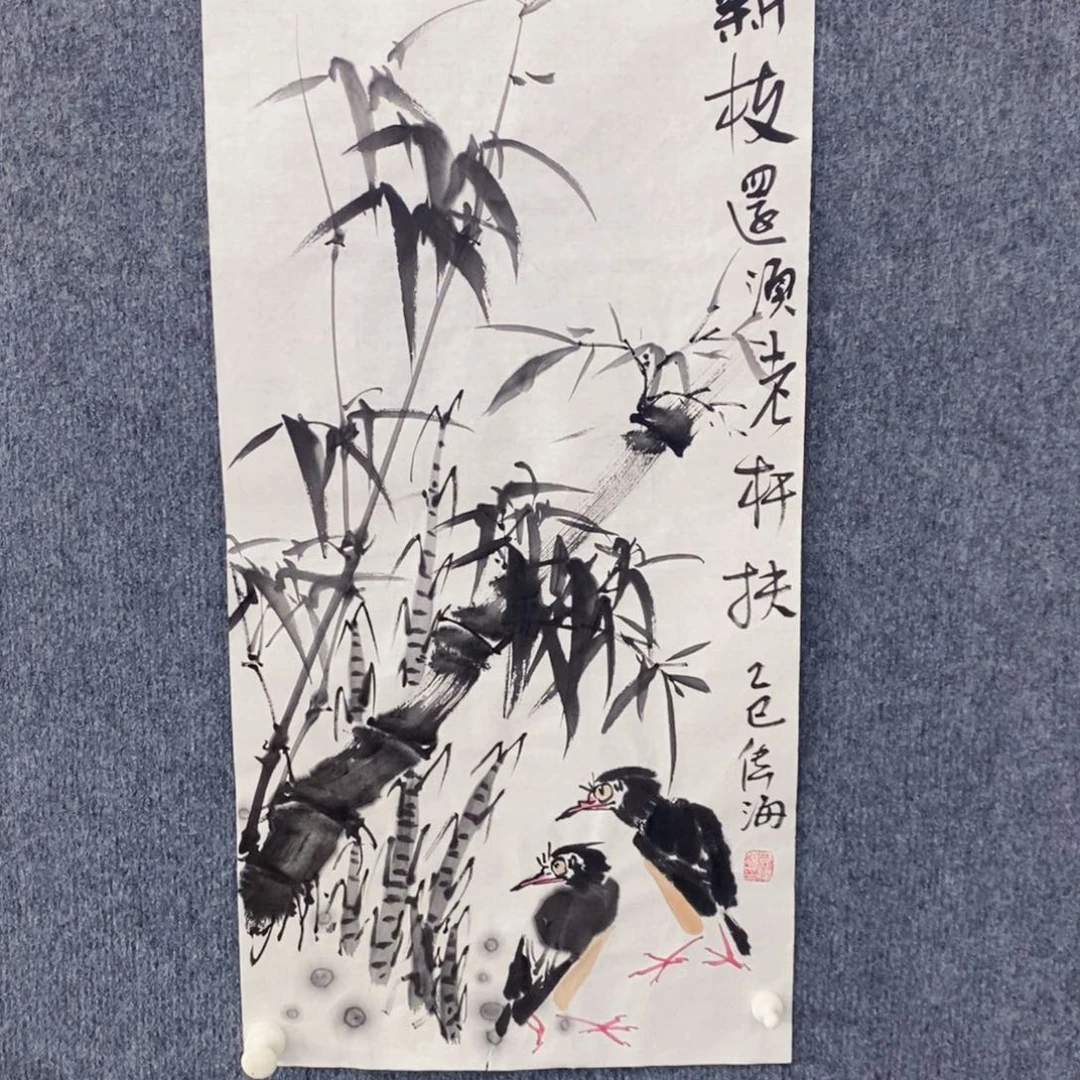 新枝還須老杆扶
乙巳传海